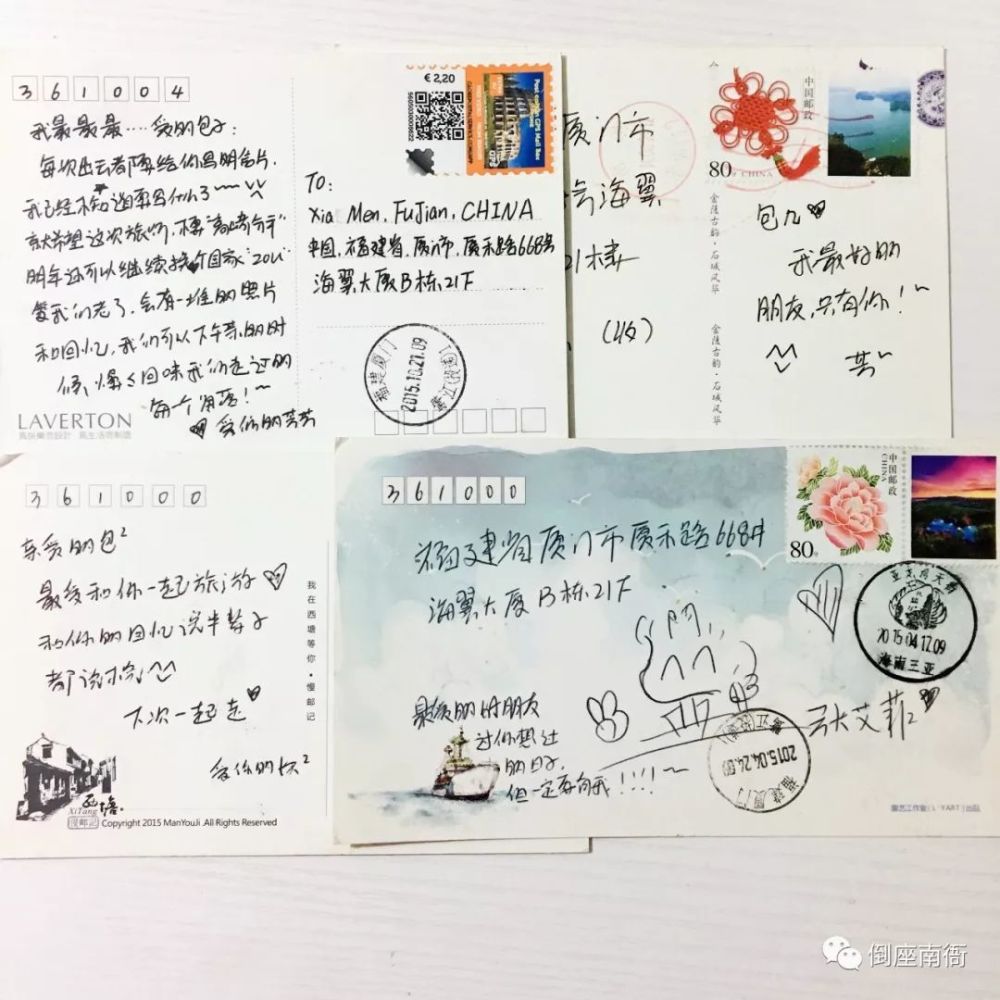 361004
我最最最....爱的包子:
每次出去都要给你写明信片,
我已经
明年还可以继续找个国家"2011"
等我们老了,会有一堆的照片
和回忆,我们可以下午茶的时
候,慢々回味我们走过的
每一个角落!~
爱你的芸芸
LAVERTON
€ 2,20
TO:
Xia Men, FuJian, CHINA
中国,福建省,厦门市,厦禾路668号
海翼大厦B栋,21F
福建厦门
2015.10.21.09
厦门市
号海翼
21楼
(收)
中国邮政
80分 CHINA
金陵古韵·石城风华
金陵古韵·石城风华
包儿
我最好的
朋友,只有你!~
芸~
361000
亲爱的包²
最爱和你一起旅游
和你的回忆说半辈子
都说不完
下次一起走
我在西塘等你·慢邮记
XiTang
漫邮记 Copyright 2015 ManYouJi .All Rights Reserved
361000
福建省厦门市厦禾路668号
海翼大厦B栋,21F
中国邮政
CHINA
80分
2015.04.17.09
海南三亚
最爱的好朋友
过你想过
的日子,
但一定要有我!!!!~
张艾菲²
2015.04.24.09
福建厦门
倒座南衙